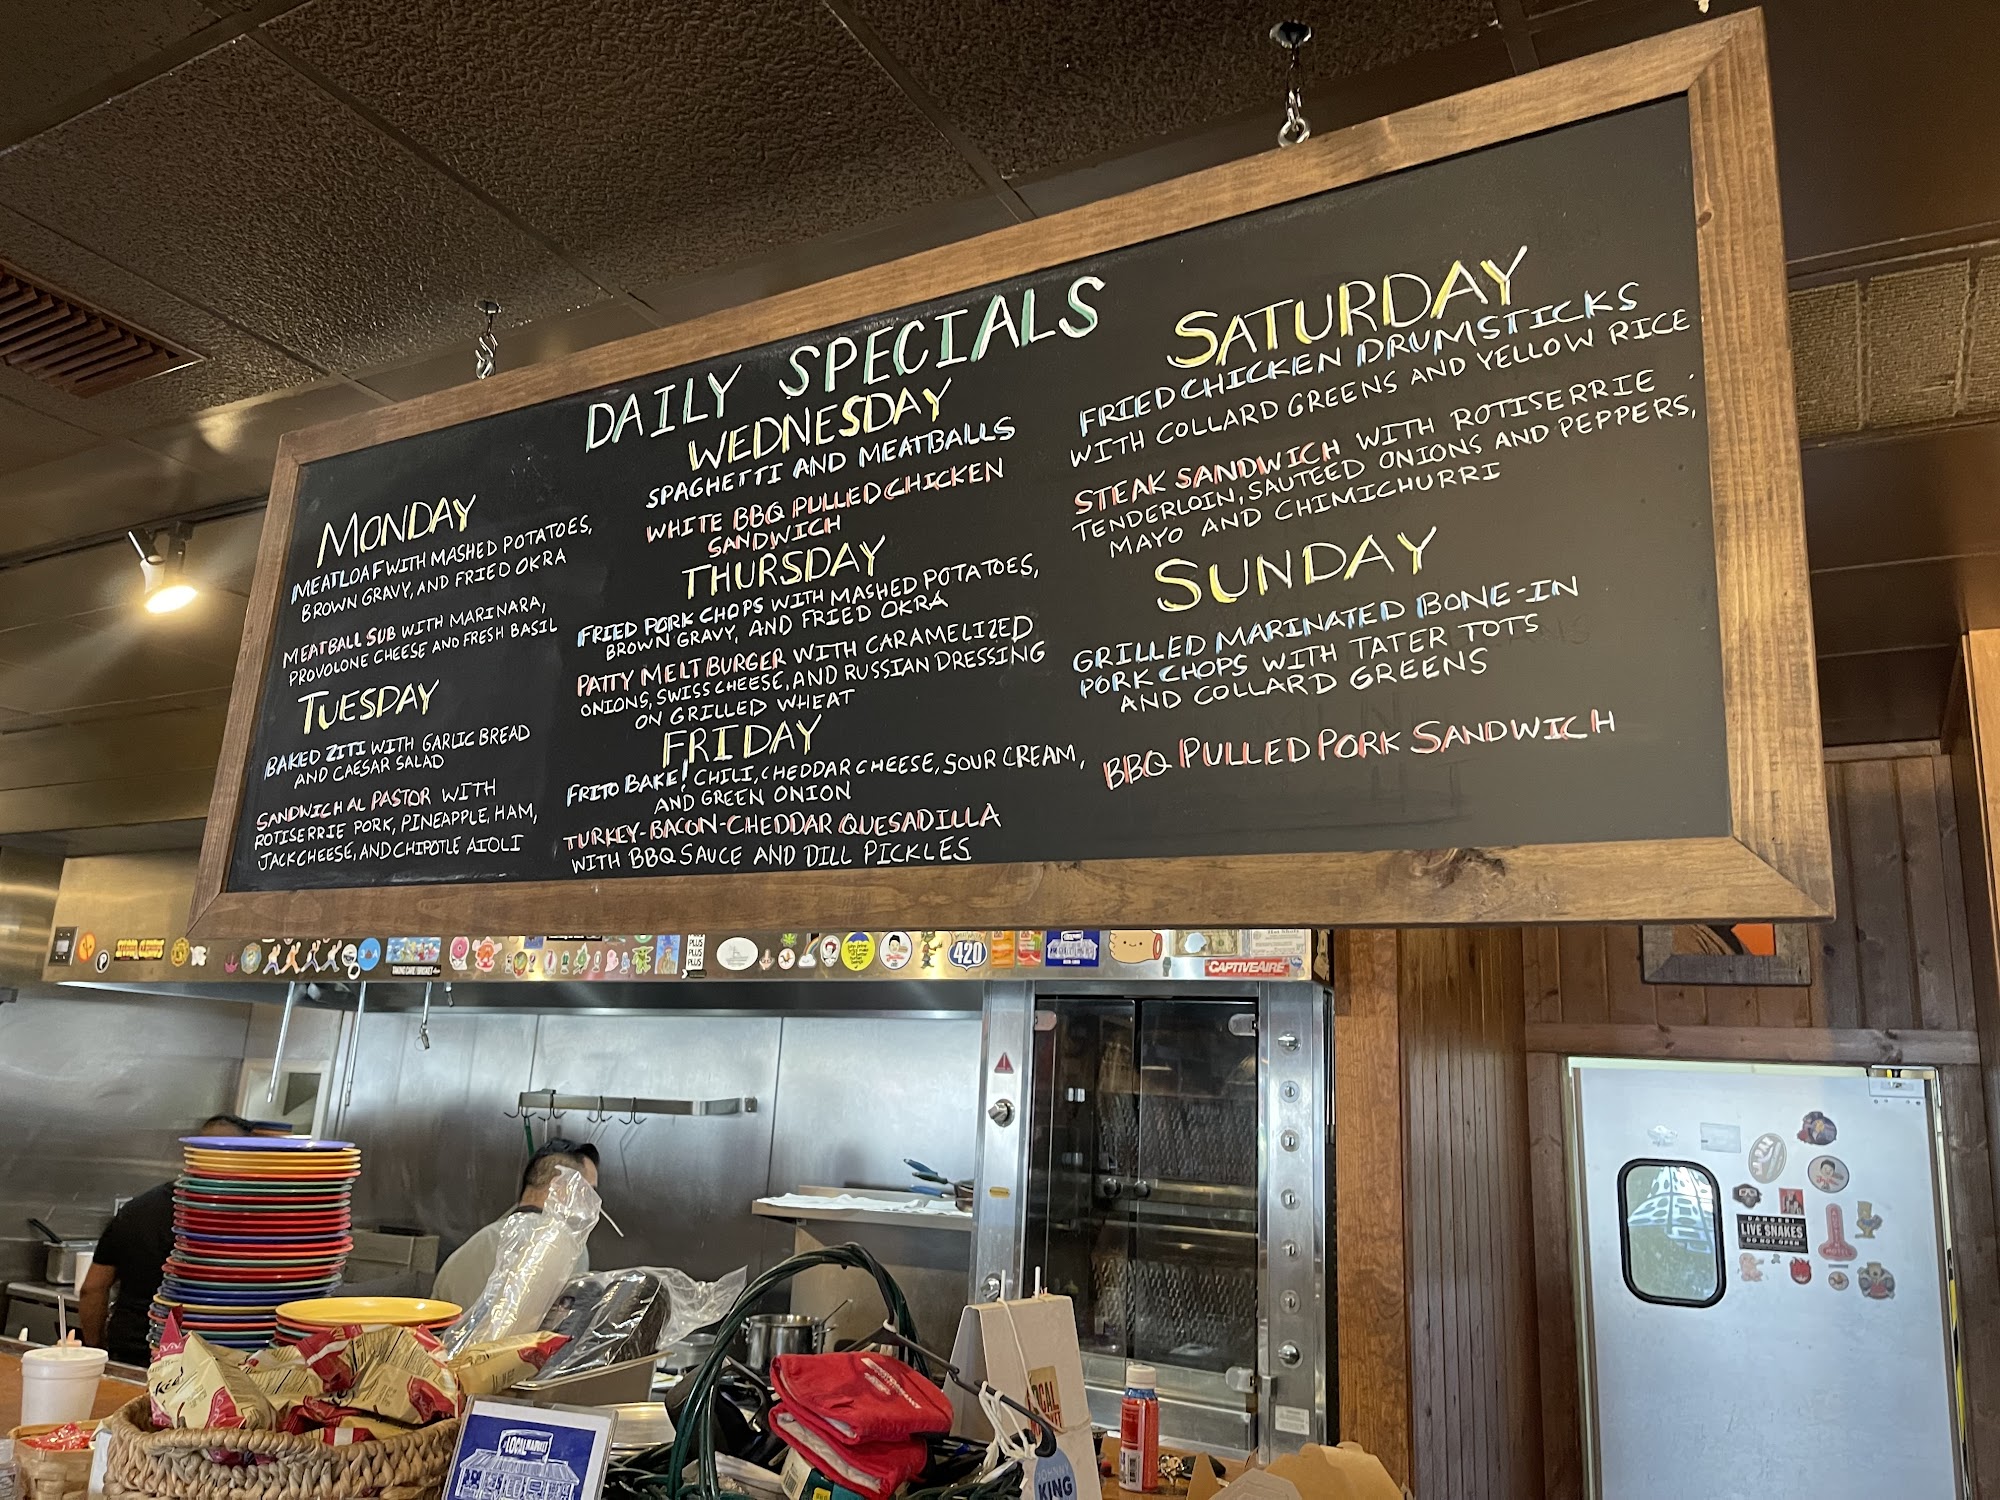 DAILY SPECIALS
MONDAY
MEATLOAF WITH MASHED POTATOES,
BROWN GRAVY, AND FRIED OKRA
MEATBALL SUB WITH MARINARA,
PROVOLONE CHEESE AND FRESH BASIL
TUESDAY
BAKED ZITI WITH GARLIC BREAD
AND CAESAR SALAD
SANDWICH AL PASTOR WITH
ROTISERRIE PORK, PINEAPPLE, HAM,
JACK CHEESE, AND CHIPOTLE AIOLI
WEDNESDAY
SPAGHETTI AND MEATBALLS
WHITE BBQ PULLED CHICKEN
SANDWICH
THURSDAY
FRIED PORK CHOPS WITH MASHED POTATOES,
BROWN GRAVY, AND FRIED OKRA
PATTY MELT BURGER WITH CARAMELIZED
ONIONS, SWISS CHEESE, AND RUSSIAN DRESSING
ON GRILLED WHEAT
FRIDAY
FRITO BAKE! CHILI, CHEDDAR CHEESE, SOUR CREAM,
AND GREEN ONION
TURKEY-BACON-CHEDDAR QUESADILLA
WITH BBQ SAUCE AND DILL PICKLES
SATURDAY
FRIED CHICKEN DRUMSTICKS
WITH COLLARD GREENS AND YELLOW RICE
STEAK SANDWICH WITH ROTISERRIE
TENDERLOIN, SAUTEED ONIONS AND PEPPERS,
MAYO AND CHIMICHURRI
SUNDAY
GRILLED MARINATED BONE-IN
PORK CHOPS WITH TATER TOTS
AND COLLARD GREENS
BBQ PULLED PORK SANDWICH
PLUS
PLUS
PLUS
420
CAPTIVEAIRE
DANGER!
LIVE SNAKES
DO NOT OPEN
MOTEL
LOCAL MARKET
KING